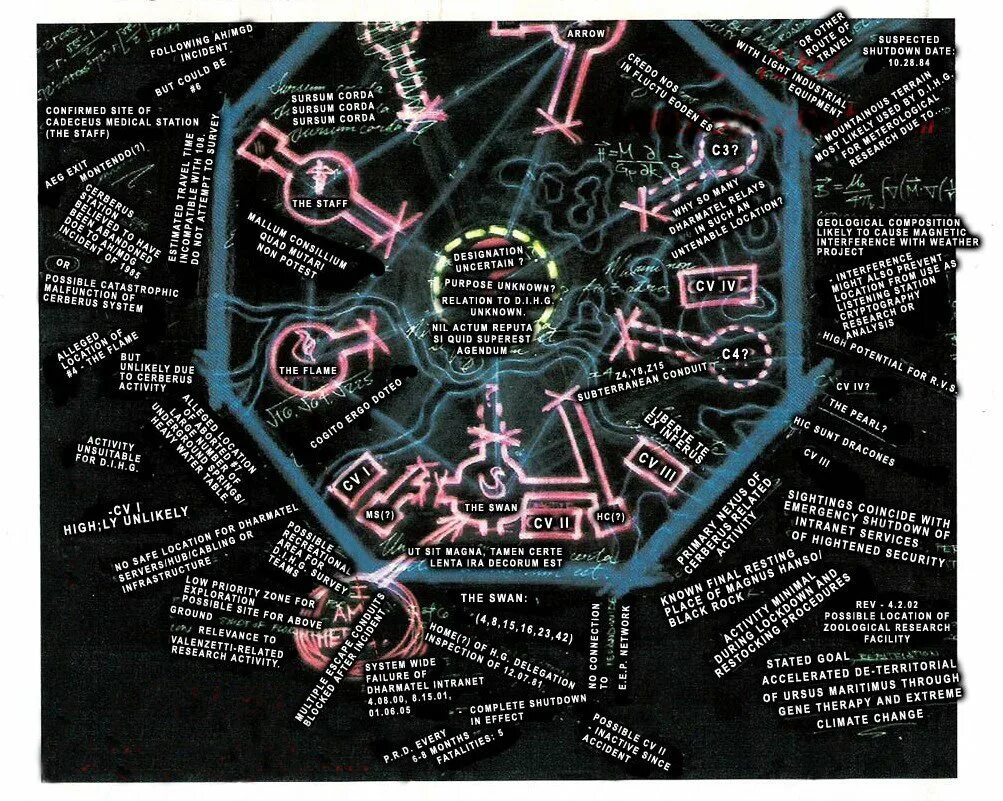 FOLLOWING AH/MGD
INCIDENT
BUT COULD BE
#6
CONFIRMED SITE OF
CADECEUS MEDICAL STATION
(THE STAFF)
AEG EXIT
MONTENDO(?)
CERBERUS
STATION
BELIEVED TO HAVE
BEEN ABANDONED
DUE TO AH/MDG
INCIDENT OF 1985
OR
POSSIBLE CATASTROPHIC
MALFUNCTION OF
CERBERUS SYSTEM
ESTIMATED TRAVEL TIME
INCOMPATIBLE WITH 108.
DO NOT ATTEMPT TO SURVEY
ALLEGED
LOCATION OF
#4 - THE FLAME
BUT
UNLIKELY DUE
TO CERBERUS
ACTIVITY
ALLEGED LOCATION
OF ABORTED #7
LARGE NUMBER OF
UNDERGROUND SPRINGS/
HEAVY WATER TABLE.
ACTIVITY
UNSUITABLE
FOR D.I.H.G.
-CV I
HIGH;LY UNLIKELY
NO SAFE LOCATION FOR DHARMATEL
SERVERS/HUB/CABLING OR
INFRASTRUCTURE
LOW PRIORITY ZONE FOR
EXPLORATION
POSSIBLE SITE FOR ABOVE
GROUND
RELEVANCE TO
VALENZETTI-RELATED
RESEARCH ACTIVITY.
POSSIBLE
RECREATIONAL
AREA FOR
D.I.H.G. SURVEY
TEAMS
I
AM
HE
MULTIPLE ESCAPE CONDUITS
BLOCKED AFTER INCIDENT.
SURSUM CORDA
SURSUM CORDA
SURSUM CORDA
Sursum corda
THE STAFF
MALLUM CONSILLIUM
QUAD MUTARI
NON POTEST
THE FLAME
COGITO ERGO DOTEO
ARROW
CREDO NOS
IN FLUCTU EODEN ES
C3?
WHY SO MANY
DHARMATEL RELAYS
IN SUCH AN
UNTENABLE LOCATION?
DESIGNATION
UNCERTAIN ?
PURPOSE UNKNOWN?
RELATION TO D.I.H.G.
UNKNOWN.
NIL ACTUM REPUTA
SI QUID SUPEREST
AGENDUM
CV IV
C4?
Z4,Y8,Z15
SUBTERRANEAN CONDUIT
LIBERTE TE
EX INFERUS
CV III
CV I
MS(?)
THE SWAN
CV II
HC(?)
UT SIT MAGNA, TAMEN CERTE
LENTA IRA DECORUM EST
THE SWAN:
(4,8,15,16,23,42)
HOME(?) OF H.G. DELEGATION
INSPECTION OF 12.07.81.
SYSTEM WIDE
FAILURE OF
DHARMATEL INTRANET
4.08.00, 8.15.01.
01.06.05
COMPLETE SHUTDOWN
IN EFFECT
P.R.D. EVERY
6-8 MONTHS
FATALITIES: 5
POSSIBLE CV II
- INACTIVE SINCE
ACCIDENT
NO CONNECTION
TO
E.E.P. NETWORK
OR OTHER
ROUTE OF
TRAVEL
WITH LIGHT INDUSTRIAL
EQUIPMENT
SUSPECTED
SHUTDOWN DATE:
10.28.84
MOUNTAINOUS TERRAIN
MOST LIKELY USED BY D.I.H.G.
FOR METEROLOGICAL
RESEARCH DUE TO...
GEOLOGICAL COMPOSITION
LIKELY TO CAUSE MAGNETIC
INTERFERENCE WITH WEATHER
PROJECT
- INTERFERENCE
MIGHT ALSO PREVENT
LOCATION FROM USE AS
LISTENING STATION
CRYPTOGRAPHY
RESEARCH OR
ANALYSIS
HIGH POTENTIAL FOR R.V.S.
CV IV?
THE PEARL?
HIC SUNT DRACONES
CV III
PRIMARY NEXUS OF
CERBERUS RELATED
ACTIVITY
SIGHTINGS COINCIDE WITH
EMERGENCY SHUTDOWN OF
INTRANET SERVICES
OF HIGHTENED SECURITY
KNOWN FINAL RESTING
PLACE OF MAGNUS HANSO/
BLACK ROCK
ACTIVITY MINIMAL
DURING LOCKDOWN AND
RESTOCKING PROCEDURES
REV - 4.2.02
POSSIBLE LOCATION OF
ZOOLOGICAL RESEARCH
FACILITY
STATED GOAL
ACCELERATED DE-TERRITORIAL
OF URSUS MARITIMUS THROUGH
GENE THERAPY AND EXTREME
CLIMATE CHANGE